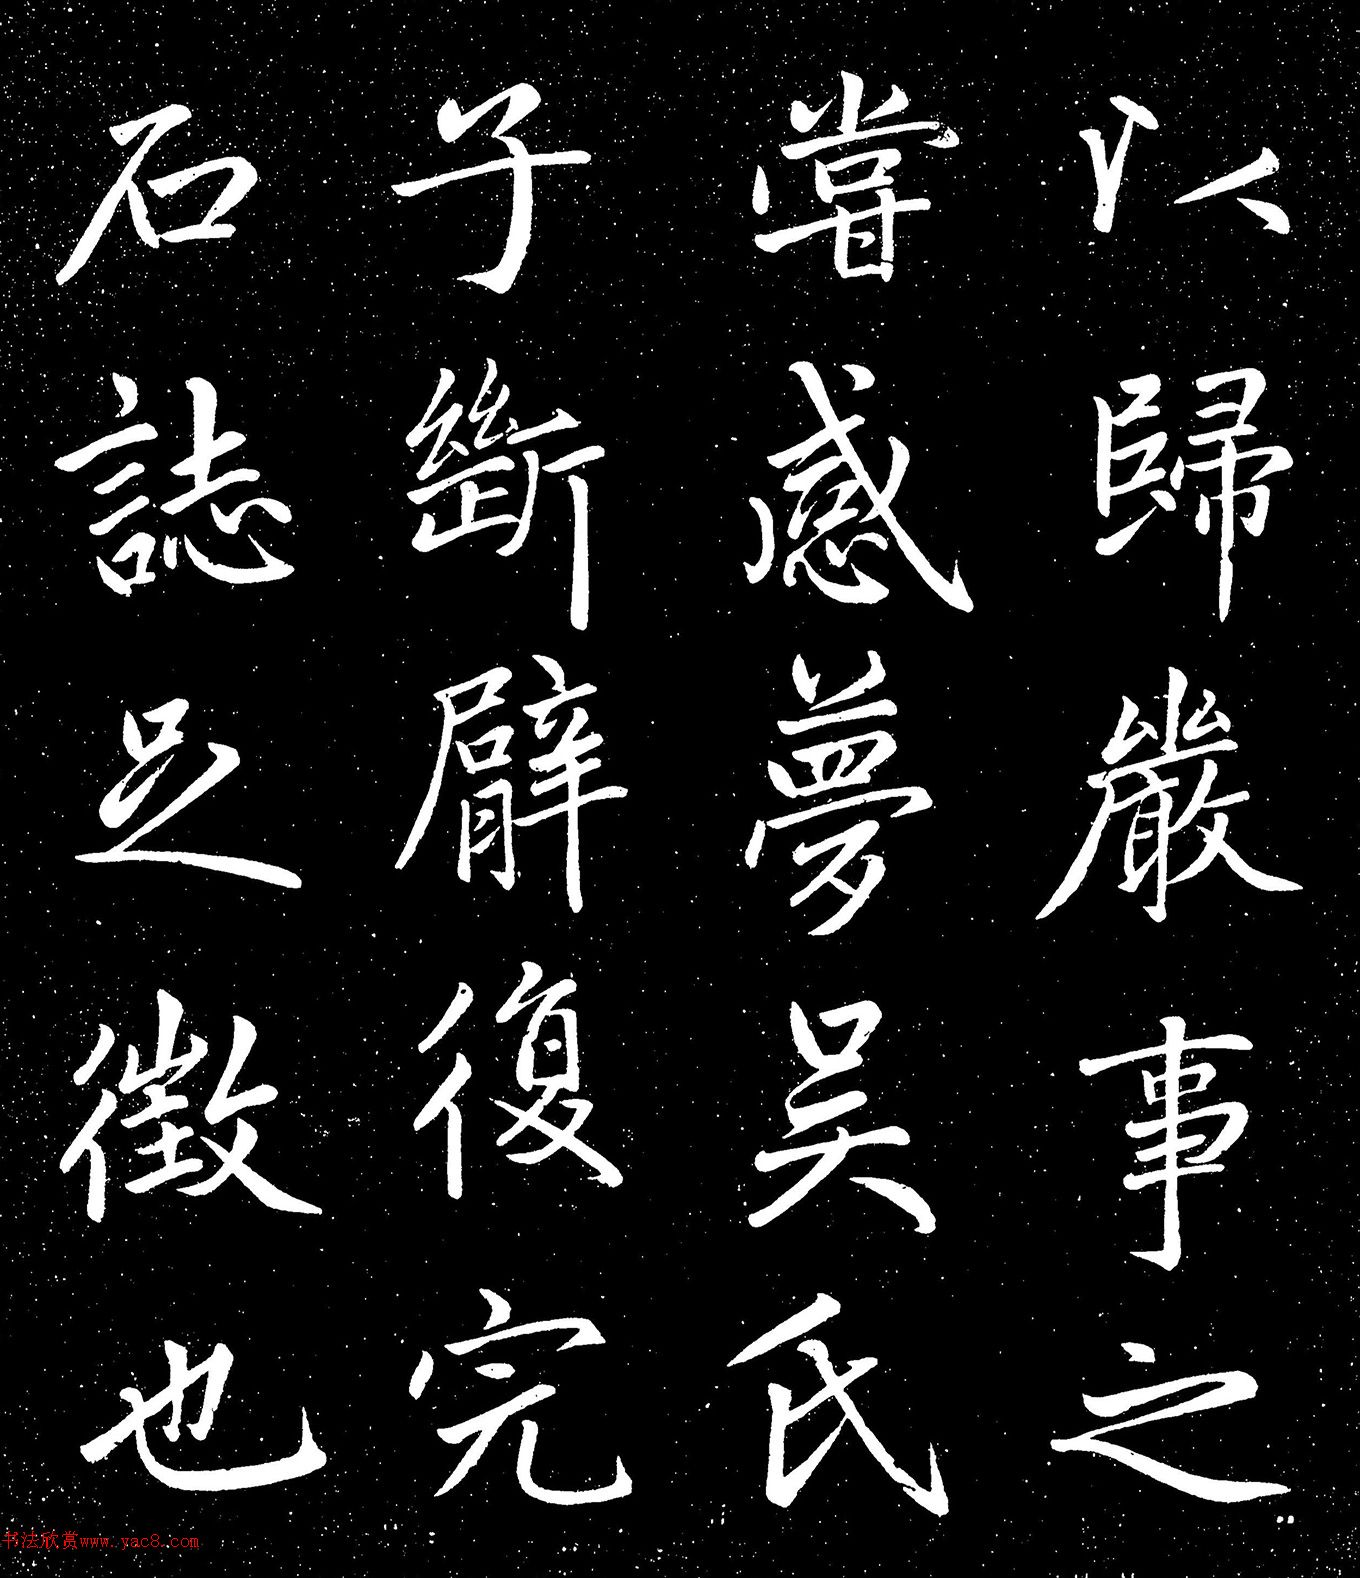 以歸嚴事之
嘗感夢吳氏
子斷臂復完
石誌足徵也
书法欣赏www.yac8.com